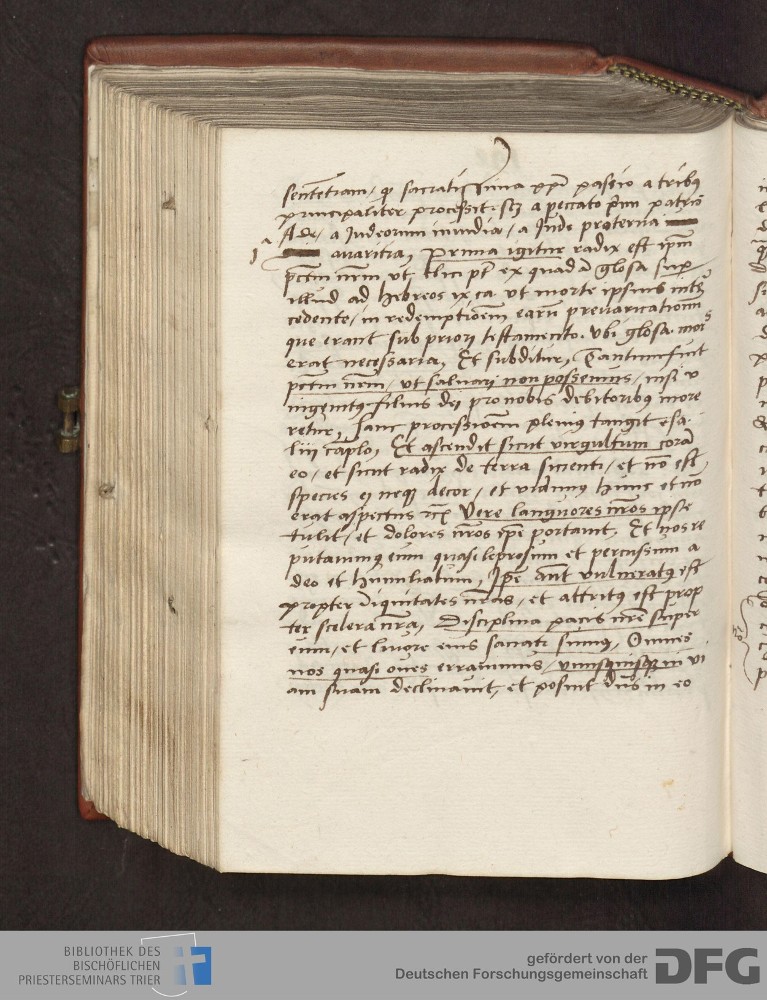 sententiam, ꝙ sacratissima xpi passio a tribꝰ
principaliter processit. scz a peccato primi patris
Ade, a Judeorum inuidia, a Jude proterua
avaritia, Prima igitur radix est ipm
pctm nrm ut clici pt ex quadā glosa sup
illud ad hebreos ix ca. ut morte ipsius inter
cedente, in redemptioēm earū prevaricationū
que erant sub priori testamento. Ubi glosa. mors
erat necessaria, Et subditur, Tantum fuit
pctm nrm, ut saluari non possemus, nisi v
nigenitꝰ filius dei pro nobis debitoribꝰ more
retur, hanc processioēm plenius tangit esa.
liij caplo, Et ascendit sicut virgultum corā
eo, et sicut radix de terra sicienti, et nō est
species ei neqꝫ decor, et vidimꝰ hunc et nō
erat aspectus rc Vere languores nros ipse
tulit, et dolores nros ipe portavit, Et nos re
putavimꝰ eum quasi leprosum et percussum a
deo et humiliatum, Ipe aūt vulneratꝰ est
propter iniquitates nras, et attritꝰ est prop
ter scelera nra, Disciplina pacis nre super
eum, et livore eius sanati sumꝰ, Omnes
nos quasi oves erravimus, unusquisqꝫ in vi
am suam declinavit, et posuit dūs in eo
BIBLIOTHEK DES
BISCHÖFLICHEN
PRIESTERSEMINARS TRIER
gefördert von der
Deutschen Forschungsgemeinschaft
DFG